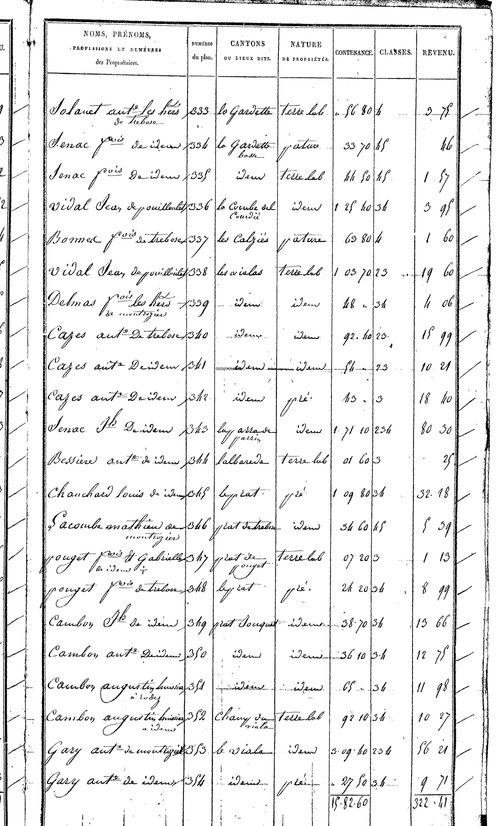 NOMS, PRÉNOMS, PROFESSIONS ET DEMEURES des Propriétaires.
NUMÉROS du plan.
CANTONS OU LIEUX DITS.
NATURE DE PROPRIÉTÉS.
CONTENANCE.
CLASSES.
REVENU.
Solanet antne les hérs de trebose 333 la Gardette terre lab 56 80 4 3 78
Senac fois de idem 334 la Gardette basse pature 33 70 45 46
Senac fois De idem 335 idem terre lab 44 50 45 1 57
Vidal Jean de pouilloulet 336 la Combe del idem 1 25 40 34 3 95
Bonned fois de trebose 337 les Calziés pature 63 80 4 1 60
Vidal Jean de pouilloulet 338 les vialas terre lab 1 03 70 23 19 60
Delmas fois les hérs de montagier 339 idem idem 48 34 4 06
Cazes antne De trebose 340 idem idem 92 40 23 15 99
Cazes antne De idem 341 idem idem 54 23 10 21
Cazes antne De idem 342 idem pré 43 3 18 40
Senac Jh De idem 343 idem 1 71 10 234 80 30
Bessiere antne de idem 344 labbareda terre lab 01 60 3 25
Chanchard louis de idem 345 le prat pré 1 09 80 34 32 18
Lacombe mathieu de montagier 346 prat de trebose idem 34 60 45 5 39
pouget fois Gabrielle de idem 347 prat de pouget terre lab 07 20 3 1 13
pouget fois de trebose 348 le prat pré 24 20 34 8 99
Cambon Jh de idem 349 prat Souquet idem 38 70 34 13 66
Cambon antne De idem 350 idem idem 36 10 34 12 75
Cambon augustin a rodez 351 idem idem 65 34 11 98
Cambon augustin a idem 352 Champ du viala terre lab 92 10 34 10 27
Gary antne de montagier 353 le viala idem 3 09 40 234 56 21
Gary antne de idem 354 idem pré 27 50 34 9 71
15 82 60 322 41